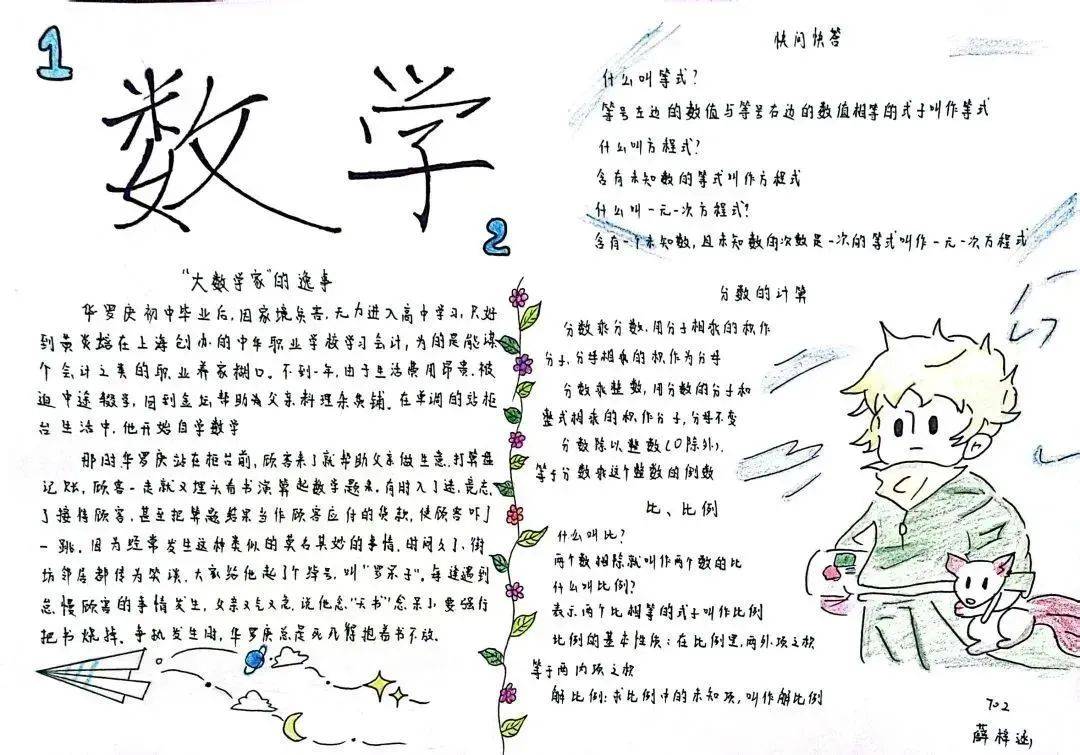 1
数学
2
"大数学家"的逸事
华罗庚初中毕业后,因家境贫苦,无力进入高中学习,只好
到黄炎培在上海创办的中华职业学校学习会计,为的是能谋
个会计之类的职业养家糊口。不到一年,由于生活费用昂贵,被
迫中途辍学,回到金坛帮助为父亲料理杂货铺。在单调的站柜
台生活中,他开始自学数学
那时华罗庚站在柜台前,顾客来了就帮助父亲做生意,打算盘
记账,顾客一走就又埋头看书演算起数学题来。有时入了迷,竟忘
了接待顾客,甚至把算题结果当作顾客应付的货款,使顾客吓了
一跳。因为经常发生这种类似的莫名其妙的事情,时间久了,街
坊邻居都传为笑谈,大家给他起了个绰号,叫"罗呆子"。每逢遇到
怠慢顾客的事情发生,父亲又气又急,说他念"天书"念呆了,要强行
把书烧掉。争执发生时,华罗庚总是死死得抱着书不放。
快问快答
什么叫等式?
等号左边的数值与等号右边的数值相等的式子叫作等式
什么叫方程式?
含有未知数的等式叫作方程式
什么叫一元一次方程式?
含有一个未知数,且未知数的次数是一次的等式叫作一元一次方程式
分数的计算
分数乘分数,用分子相乘的积作
分子,分母相乘的积作为分母
分数乘整数,用分数的分子和
整式相乘的积作分子,分母不变
分数除以整数(0除外),
等于分数乘这个整数的倒数
比、比例
什么叫比?
两个数相除就叫作两个数的比
什么叫比例?
表示两个比相等的式子叫作比例
比例的基本性质:在比例里,两外项之积
等于两内项之积
解比例:求比例中的未知项,叫作解比例
702
薛梓